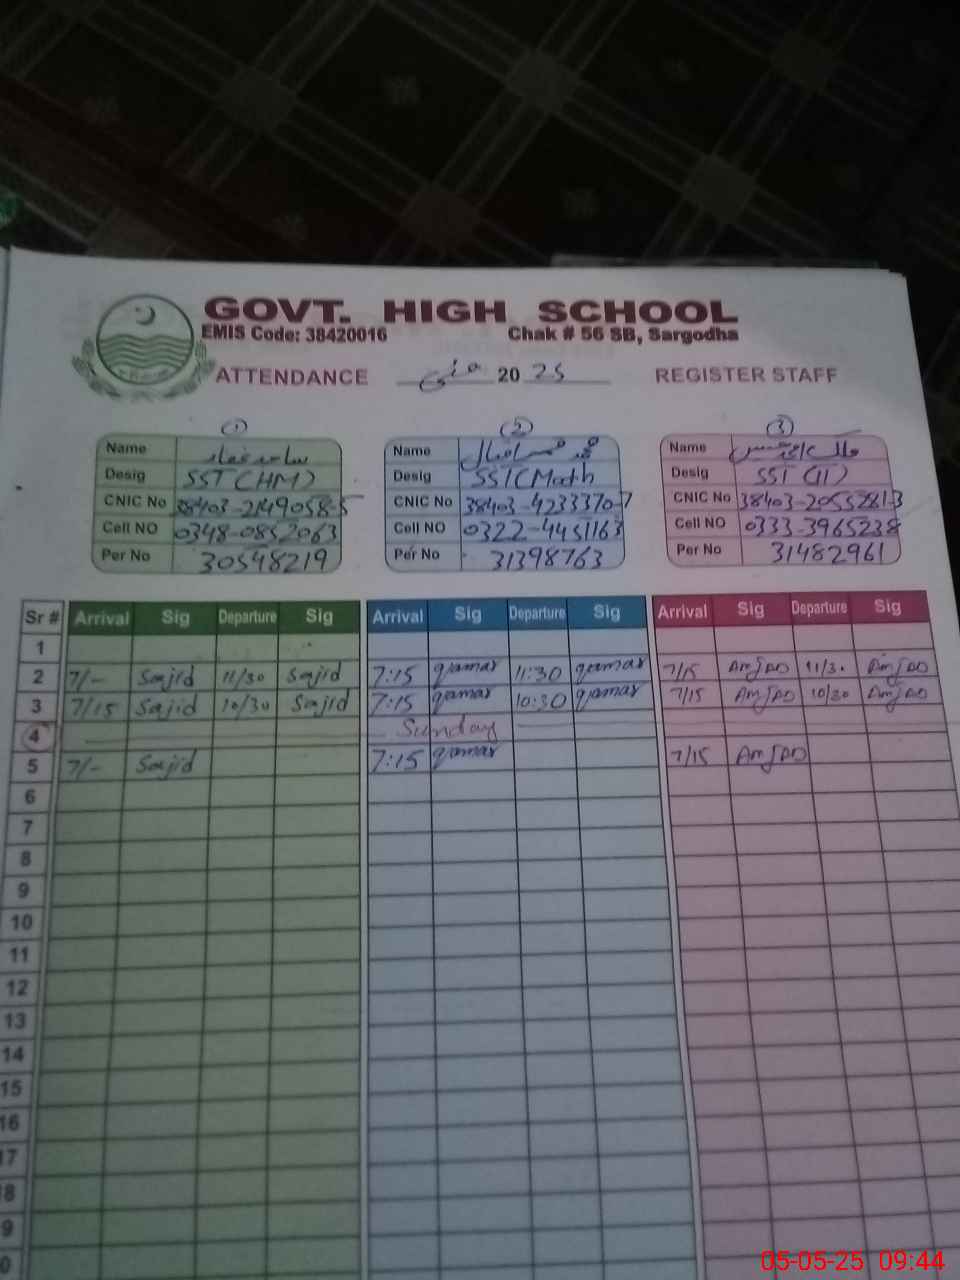 GOVT. HIGH SCHOOL
EMIS Code: 38420016 Chak # 56 SB, Sargodha
ATTENDANCE مئی 20 25 REGISTER STAFF
1 2 3
Name ساجد Name محمد قمر اقبال Name ملک
Desig SST (HM) Desig SST (Math Desig SST (IT)
CNIC No 38403-2149058-5 CNIC No 38403-4233370-7 CNIC No 38403-2055281-3
Cell NO 0348-0852063 Cell NO 0322-4451163 Cell NO 0333-3965238
Per No 30548219 Per No 31398763 Per No 31482961
Sr # Arrival Sig Departure Sig Arrival Sig Departure Sig Arrival Sig Departure Sig
1
2 7/- Sajid 11/30 Sajid 7:15 qamar 11:30 qamar 7/15 AmJAD 11/30 AmJAD
3 7/15 Sajid 10/30 Sajid 7:15 qamar 10:30 qamar 7/15 AmJAD 10/30 AmJAD
4 Sunday
5 7/- Sajid 7:15 qamar 7/15 AmJAD
6
7
8
9
10
11
12
13
14
15
16
17
8
9
0
05-05-25 09:44